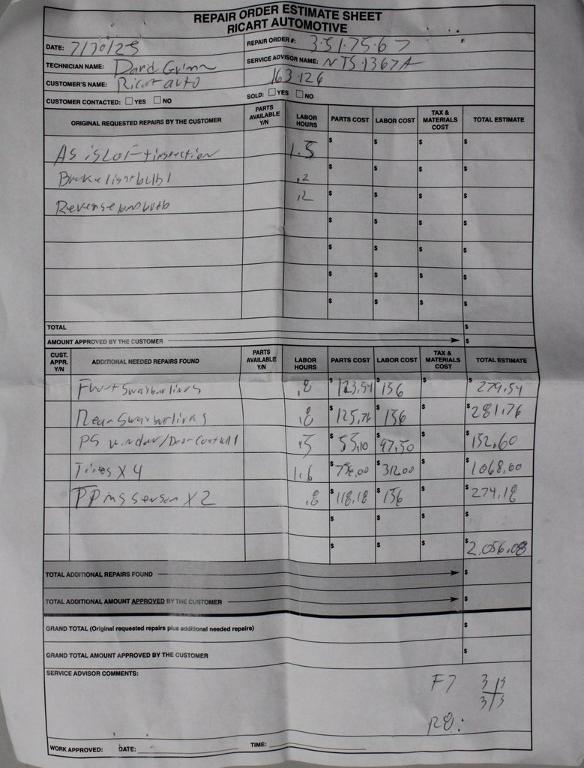 REPAIR ORDER ESTIMATE SHEET
RICART AUTOMOTIVE
DATE: 7/10/23 REPAIR ORDER #: 3517567
TECHNICIAN NAME: David SERVICE ADVISOR NAME: NTS1367A
CUSTOMER'S NAME: Ricart auto 163,126
CUSTOMER CONTACTED: YES NO SOLD: YES NO
ORIGINAL REQUESTED REPAIRS BY THE CUSTOMER PARTS AVAILABLE Y/N LABOR HOURS PARTS COST LABOR COST TAX & MATERIALS COST TOTAL ESTIMATE
As is Lot inspection 1.5 $ $ $ $
Brake light bulb .2 $ $ $ $
Reverse bulb .2 $ $ $ $
$ $ $ $
$ $ $ $
$ $ $ $
$ $ $ $
TOTAL $
AMOUNT APPROVED BY THE CUSTOMER $
CUST. APPR. Y/N ADDITIONAL NEEDED REPAIRS FOUND PARTS AVAILABLE Y/N LABOR HOURS PARTS COST LABOR COST TAX & MATERIALS COST TOTAL ESTIMATE
Front sway bar links .8 $ 123.54 $ 156 $ $ 279.54
Rear sway bar links .8 $ 125.76 $ 156 $ $ 281.76
PS window/Door control .5 $ 55.10 $ 97.50 $ $ 152.60
Tires X 4 1.6 $ 756.00 $ 312.00 $ $ 1068.00
TPMS sensor X 2 .8 $ 118.18 $ 156 $ $ 274.18
$ $ $ $
$ $ $ $ 2,056.08
TOTAL ADDITIONAL REPAIRS FOUND $
TOTAL ADDITIONAL AMOUNT APPROVED BY THE CUSTOMER $
GRAND TOTAL (Original requested repairs plus additional needed repairs) $
GRAND TOTAL AMOUNT APPROVED BY THE CUSTOMER $
SERVICE ADVISOR COMMENTS:
F7 3 3
3 3
R8:
WORK APPROVED: DATE: TIME: